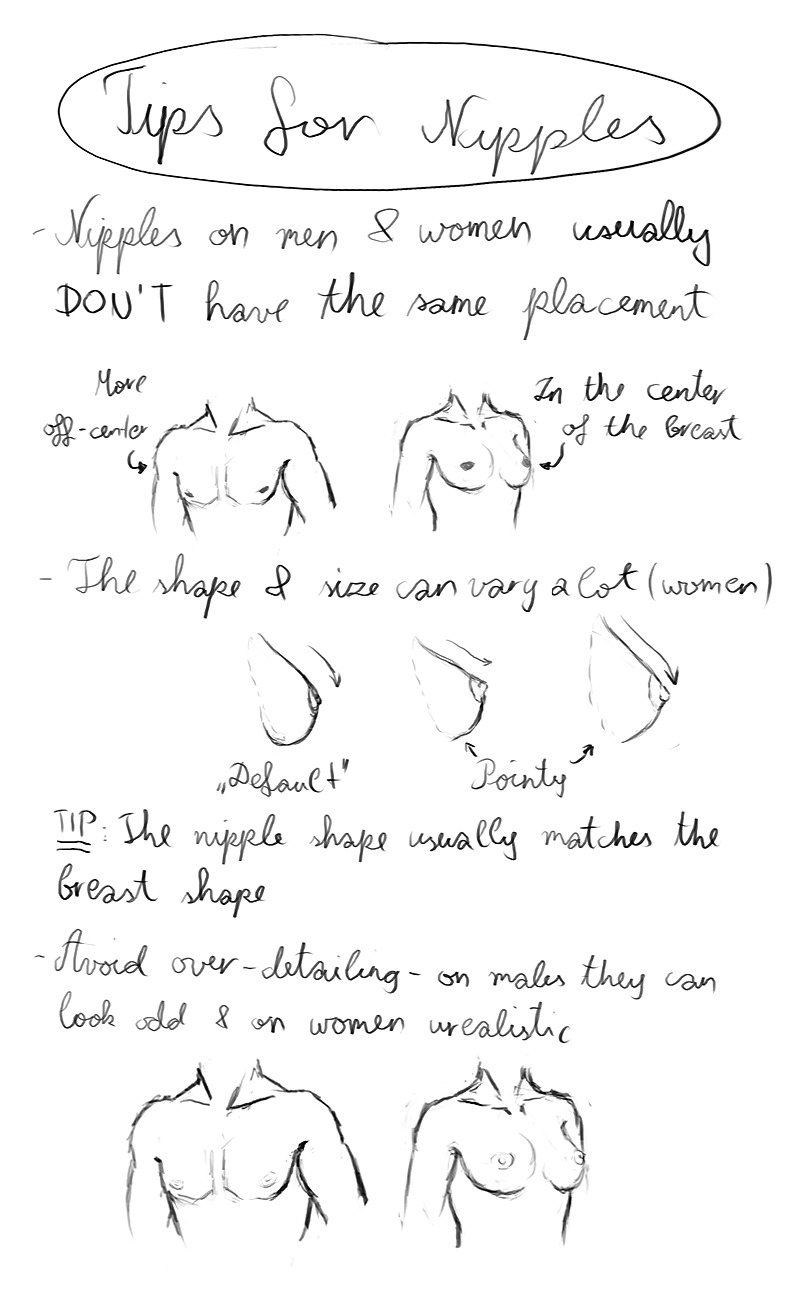 Tips for Nipples
- Nipples on men & women usually
DON'T have the same placement
More
off-center
In the center
of the breast
- The shape & size can vary a lot (women)
„Default"
Pointy
TIP: The nipple shape usually matches the
breast shape
- Avoid over-detailing - on males they can
look odd & on women urealistic